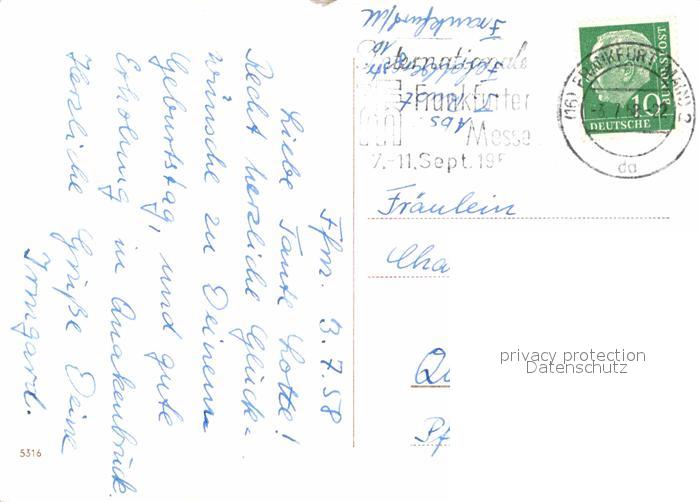 Ffm. 3.7.58
Liebe Tante Lotte!
Recht herzliche Glück-
wünsche zu Deinem
Geburtstag, und gute
Erholung in Quakenbrück.
Herzliche Grüße Deine
Irmgard.
5316
Abs.
Frankfurt/M
Internationale
Frankfurter
Messe
7.-11. Sept. 195
(16) FRANKFURT (MAIN) 2
da
10
DEUTSCHE
BUNDESPOST
Fräulein
Cha
Qu
Pf
privacy protection
Datenschutz